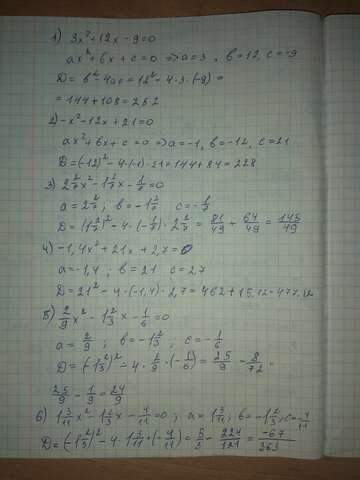 1) 3x² + 12x - 9 = 0
ax² + bx + c = 0 => a = 3, b = 12, c = -9
D = b² - 4ac = 12² - 4·3·(-9) =
= 144 + 108 = 252
2) -x² - 12x + 21 = 0
ax² + bx + c = 0 => a = -1, b = -12, c = 21
D = (-12)² - 4·(-1)·21 = 144 + 84 = 228
3) 2 2/7 x² - 1 2/7 x - 1/7 = 0
a = 2 2/7; b = -1 2/7 c = -1/7
D = (1 2/7)² - 4·(-1/7)·2 2/7 = 81/49 + 64/49 = 145/49
4) -1,4x² + 21x + 2,7 = 0
a = -1,4; b = 21 c = 2,7
D = 21² - 4·(-1,4)·2,7 = 462 + 15.12 = 477.12
5) 2/9 x² - 1 2/3 x - 1/6 = 0
a = 2/9; b = -1 2/3; c = -1/6
D = (-1 2/3)² - 4·2/9·(-1/6) = 25/9 - 8/72 =
25/9 - 1/9 = 24/9
6) 1 3/11 x² - 1 2/3 x - 4/11 = 0; a = 1 3/11; b = -1 2/3; c = -4/11
D = (-1 2/3)² - 4·1 3/11·(-4/11) = 5/3 - 224/121 = -67/363